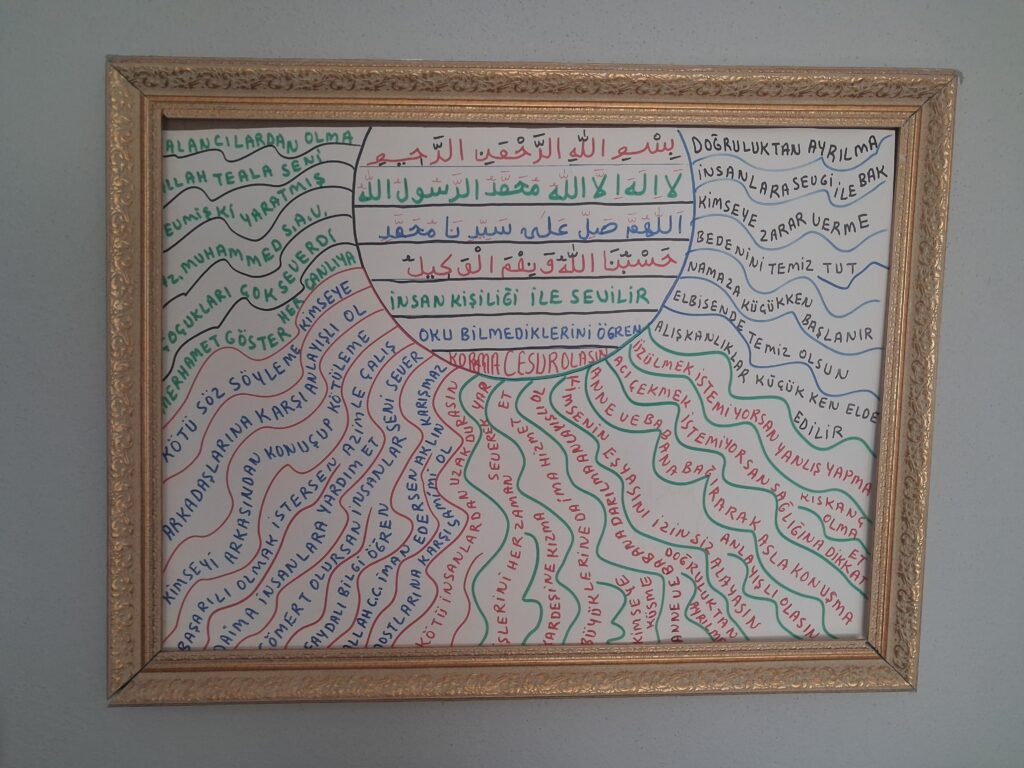 بِسْمِ اللّٰهِ الرَّحْمٰنِ الرَّحِيمِ
لَا اِلٰهَ اِلَّا اللّٰهُ مُحَمَّدُ الرَّسُولُ اللّٰهُ
اَللّٰهُمَّ صَلِّ عَلٰى سَيِّدِنَا مُحَمَّدٍ
حَسْبُنَا اللّٰهُ وَنِعْمَ الْوَكِيلُ
İNSAN KİŞİLİĞİ İLE SEVİLİR
OKU BİLMEDİKLERİNİ ÖĞREN
KORKMA CESUR OLASIN
ALANCILARDAN OLMA
LLAH TEALA SENİ
EVMİŞ Kİ YARATMIŞ
Z. MUHAMMED S.A.V.
ÇOCUKLARI ÇOK SEVERDİ
MERHAMET GÖSTER HER CANLIYA
KÖTÜ SÖZ SÖYLEME KİMSEYE
ARKADAŞLARINA KARŞI ANLAYIŞLI OL
KİMSEYİ ARKASINDAN KONUŞUP KÖTÜLEME
BAŞARILI OLMAK İSTERSEN AZİMLE ÇALIŞ
DAİMA İNSANLARA YARDIM ET
CÖMERT OLURSAN İNSANLAR SENİ SEVER
FAYDALI BİLGİ ÖĞREN
ALLAH C.C. İMAN EDERSEN AKLIN KARIŞMAZ
DOSTLARINA KARŞI SAMİMİ OL
KÖTÜ İNSANLARDAN UZAK DURASIN
İŞLERİNİ HER ZAMAN SEVEREK YAP
KARDEŞİNE KIZMA HİZMET ET
BÜYÜKLERİNE DAİMA ANLAYIŞLI OL
KİMSEYE KÜSME
ANNE VE BABANA DARILMA
KİMSENİN EŞYASINI İZİNSİZ ALAYASIN
DOĞRULUKTAN AYRILMA
ANNE VE BABANA BAĞIRARAK ASLA KONUŞMA
ANLAYIŞLI OLASIN
ACI ÇEKMEK İSTEMİYORSAN SAĞLIĞINA DİKKAT ET
ÜZÜLMEK İSTEMİYORSAN YANLIŞ YAPMA
KISKANÇ OLMA
DOĞRULUKTAN AYRILMA
İNSANLARA SEVGİ İLE BAK
KİMSEYE ZARAR VERME
BEDENİNİ TEMİZ TUT
NAMAZA KÜÇÜKKEN BAŞLANIR
ELBİSENDE TEMİZ OLSUN
ALIŞKANLIKLAR KÜÇÜKKEN ELDE EDİLİR